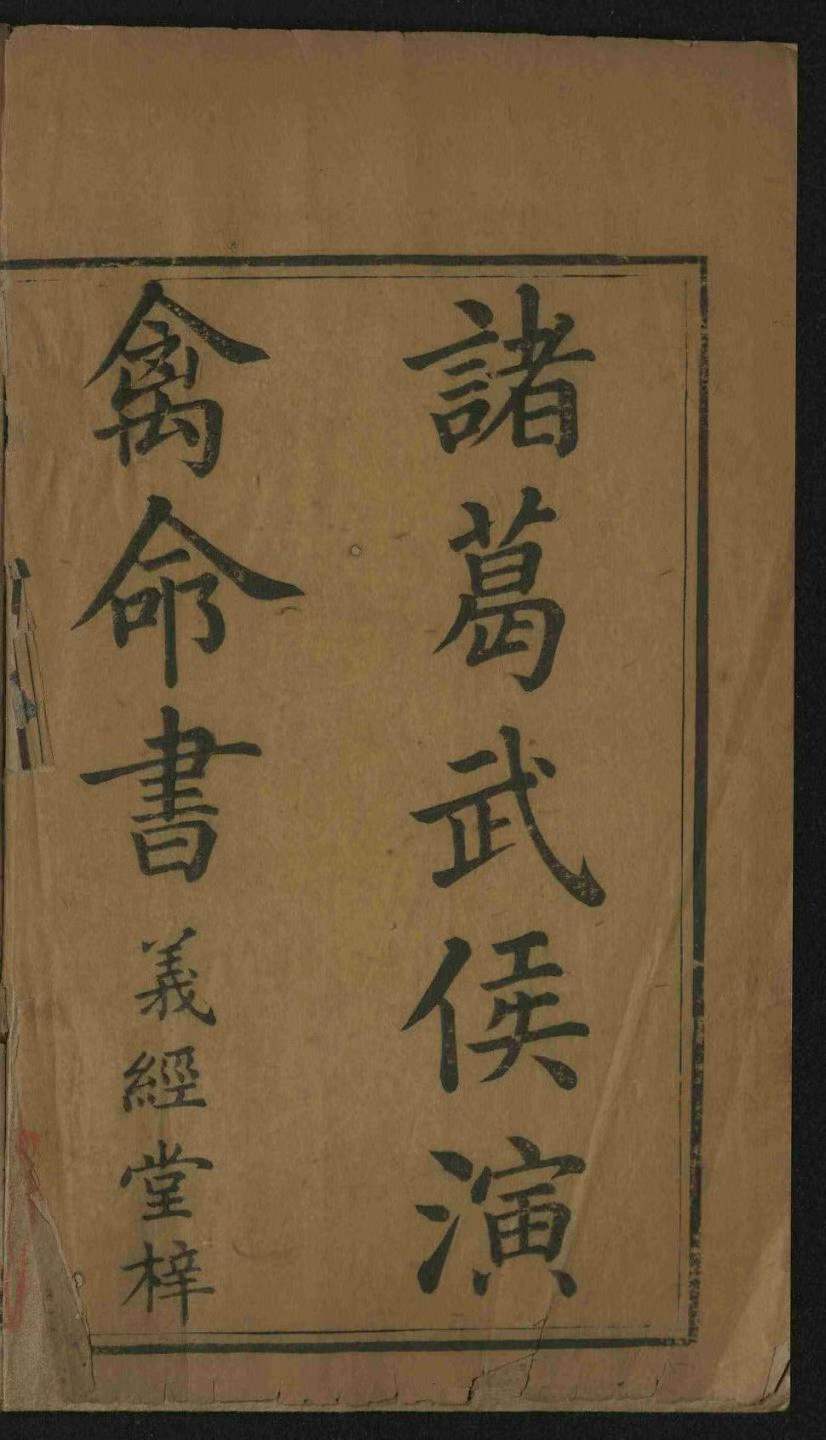 諸葛武侯演
禽命書義經堂梓